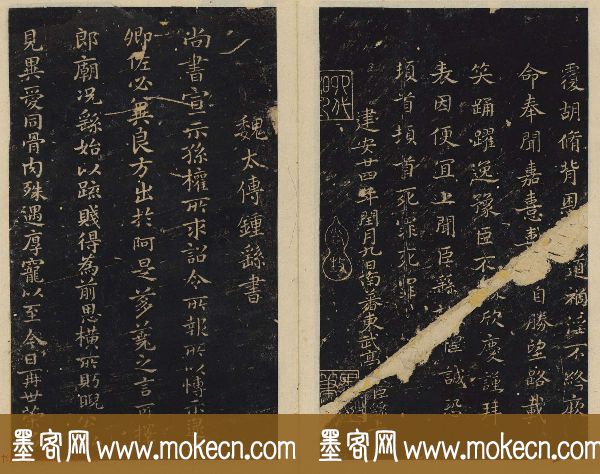 覆胡脩背恩道禍淫不終厥
命奉聞嘉憙自勝望路載
笑踊躍逸豫臣不欣慶謹拜
表因便宜上聞臣繇誠恐
頓首頓首死罪死罪
建安廿四年閏月九日南蕃東武亭
魏太傅鍾繇書
尚書宣示孫權所求詔令所報所以博示
卿佐必冀良方出於阿是芻蕘之言可擇
郎廟况繇始以疏賤得為前恩橫所盼睨公
見異愛同骨肉殊遇厚寵以至今日再世榮
墨客网 www.mokecn.com
墨客网 www.mokecn.com